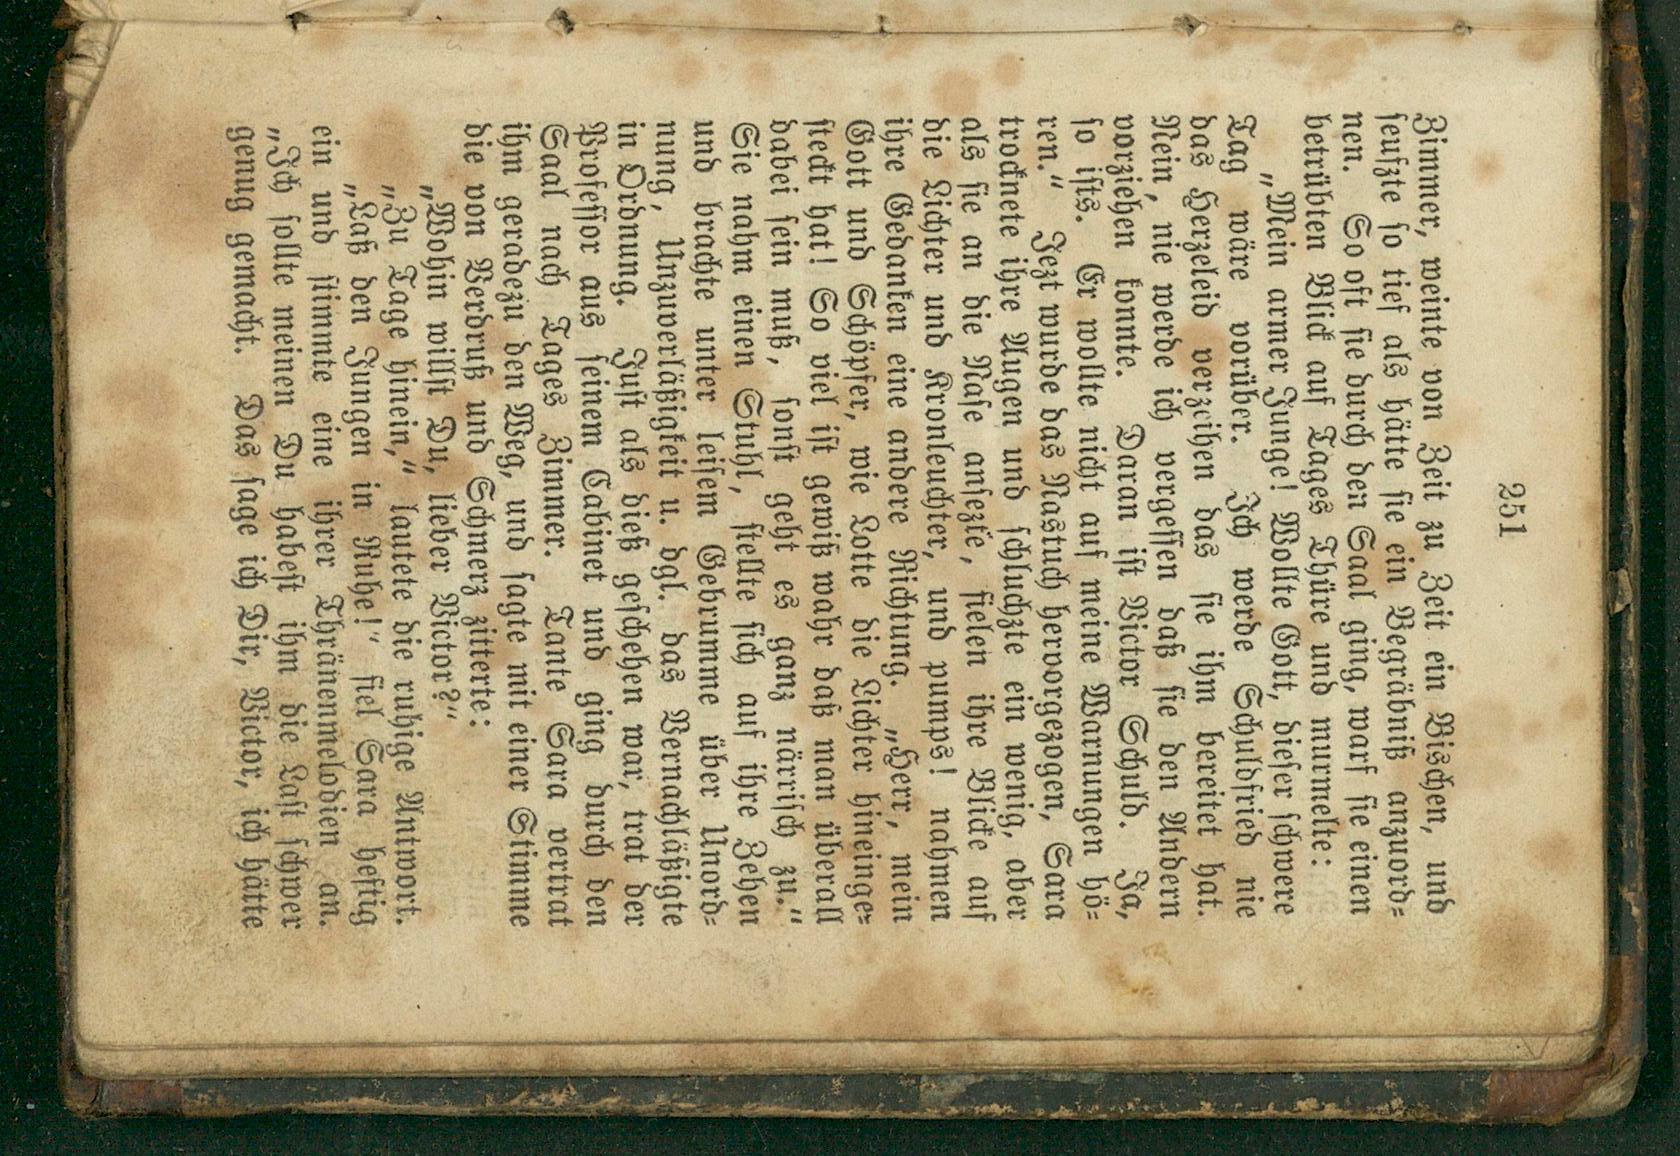 251
Zimmer, weinte von Zeit zu Zeit ein Bischen, und
seufzte so tief als hätte sie ein Begräbniß anzuord-
nen. So oft sie durch den Saal ging, warf sie einen
betrübten Blick auf Tages Thüre und murmelte:
„Mein armer Junge! Wollte Gott, dieser schwere
Tag wäre vorüber. Ich werde Schuldfried nie
das Herzeleid verzeihen das sie ihm bereitet hat.
Nein, nie werde ich vergessen daß sie den Andern
vorziehen konnte. Daran ist Victor Schuld. Ja,
so ists. Er wollte nicht auf meine Warnungen hö-
ren.“ Jezt wurde das Nastuch hervorgezogen, Sara
trocknete ihre Augen und schluchzte ein wenig, aber
als sie an die Nase ansezte, fielen ihre Blicke auf
die Lichter und Kronleuchter, und pumps! nahmen
ihre Gedanken eine andere Richtung. „Herr, mein
Gott und Schöpfer, wie Lotte die Lichter hineinge-
steckt hat! So viel ist gewiß wahr daß man überall
dabei sein muß, sonst geht es ganz närrisch zu.“
Sie nahm einen Stuhl, stellte sich auf ihre Zehen
und brachte unter leisem Gebrumme über Unord-
nung, Unzuverläßigkeit u. dgl. das Vernachläßigte
in Ordnung. Just als dieß geschehen war, trat der
Professor aus seinem Cabinet und ging durch den
Saal nach Tages Zimmer. Tante Sara vertrat
ihm geradezu den Weg, und sagte mit einer Stimme
die von Verdruß und Schmerz zitterte:
„Wohin willst Du, lieber Victor?“
„Zu Tage hinein,“ lautete die ruhige Antwort.
„Laß den Jungen in Ruhe!“ fiel Sara heftig
ein und stimmte eine ihrer Thränenmelodien an.
„Ich sollte meinen Du habest ihm die Last schwer
genug gemacht. Das sage ich Dir, Victor, ich hätte